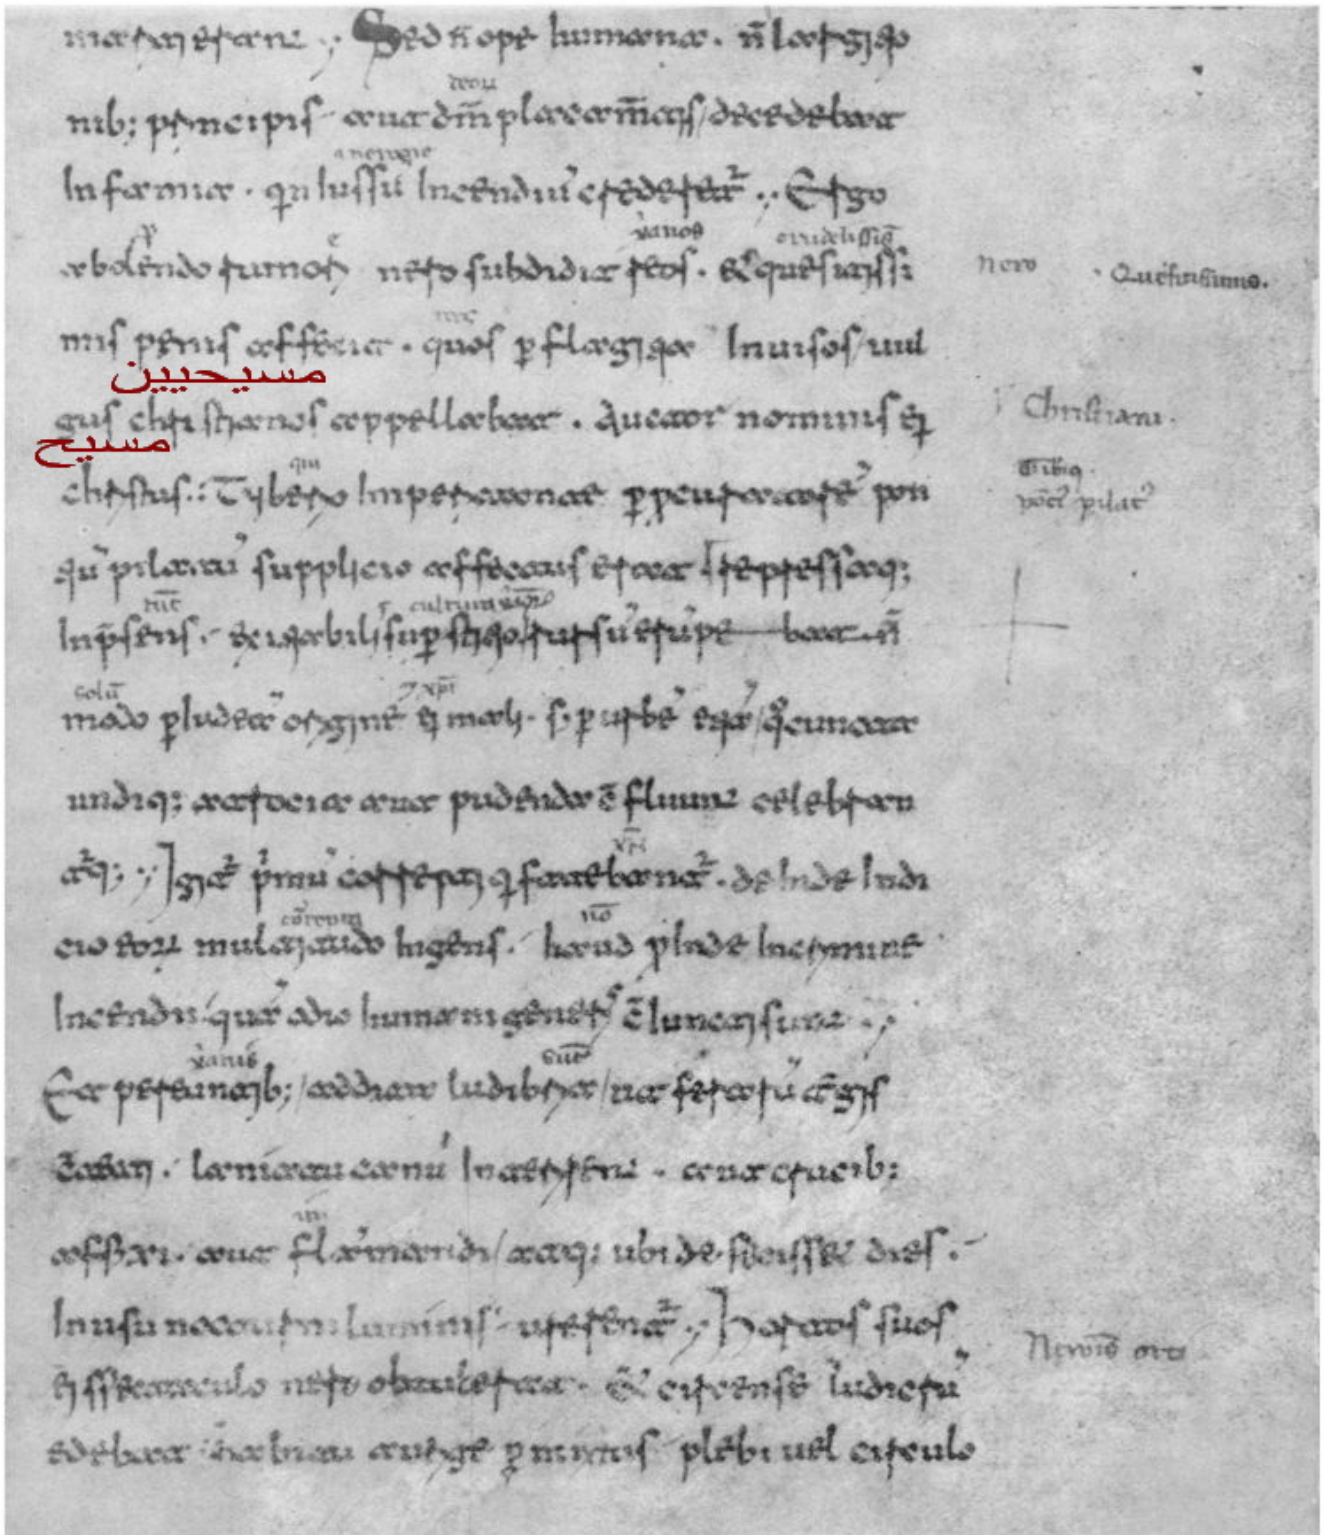 Sed n̄ ope humana. n̄ largitio
nib; principis aut dm̄ placam̄tis decedebat
Infamia. qn Iussū Incendiū crederet͛. Ergo
vanos
abolendo rumori nero subdidit reos. & quesitissi
nero
Quesitissime.
mis penis affecit. quos p flagitia Inuisos uul
مسيحيين
gus christianos appellabat. Auctor nominis ei
Christiani.
مسيح
qui
christus. Tiberio Imperitante p pcuratorē pon
pilat
tiū pilatū supplicio affectus erat repressaq;
Inp̄sens. exitiabilis supstitio rursū erūpebat. n̄
solū
modo p Iudeā originē ei mali. s; p urbē etiā q̊ cuncta
undiq; atrocia aut pudenda c̄fluunt celebran
t͛q;. Igit͛ primū correpti q fatebant͛. deInde Indi
nō
cio eoꝝ multitudo Ingens. haud pInde Incrimine
Incendii quā odio humani generis c̄Iuncti sunt.
Et pereuntib; addita ludibria ut ferarū t̄gis
c̄tecti. laniatu canū Interirent. aut crucib;
affixi. aut flāmandi atq; ubi defecisset dies.
Inusu nocturni luminis urerent͛. Hortos suos
ei spectaculo nero obtulerat. & circense ludicrū
edebat habitu aurige pmixtus plebi uel circulo